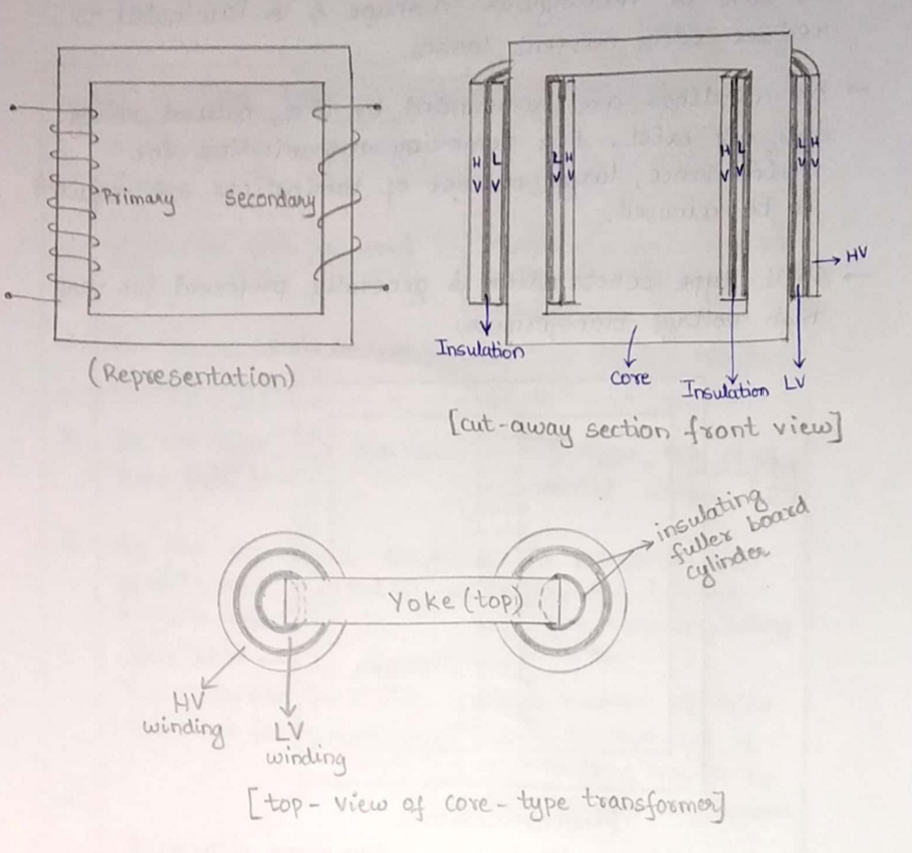 Primary
Secondary
(Representation)
H L
V V
L H
V V
H L
V V
L H
V V
HV
Insulation
core
Insulation
LV
[cut-away section front view]
insulating
fuller board
cylinder
Yoke (top)
HV
winding
LV
winding
[top-view of core-type transformer]